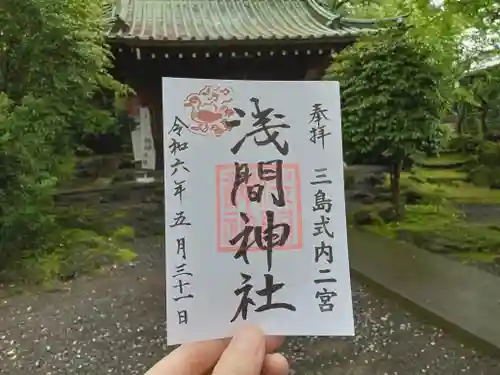 奉拝
三島式内二宮
浅間神社
令和六年五月三十一日